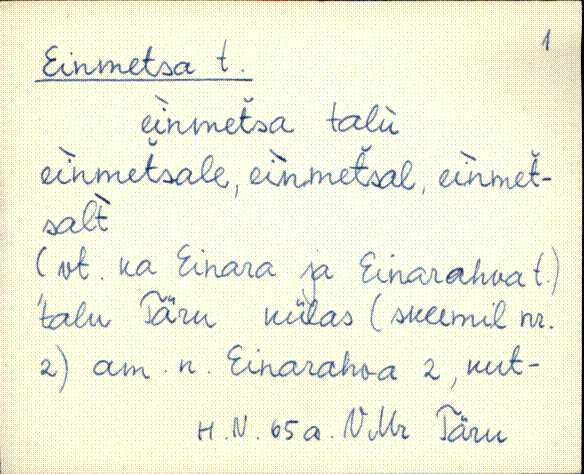 1
Einmetsa t.
eìnmet̆sa talù
eìnmet̆sale, eìnmet̆sal, eìnmet̆-
salt̀
(vt. ka Einara ja Einarahva t.)
talu Täru külas (skeemil nr.
2) am. n. Einarahva 2, kut-
H.N. 65a. V.Mr Täru